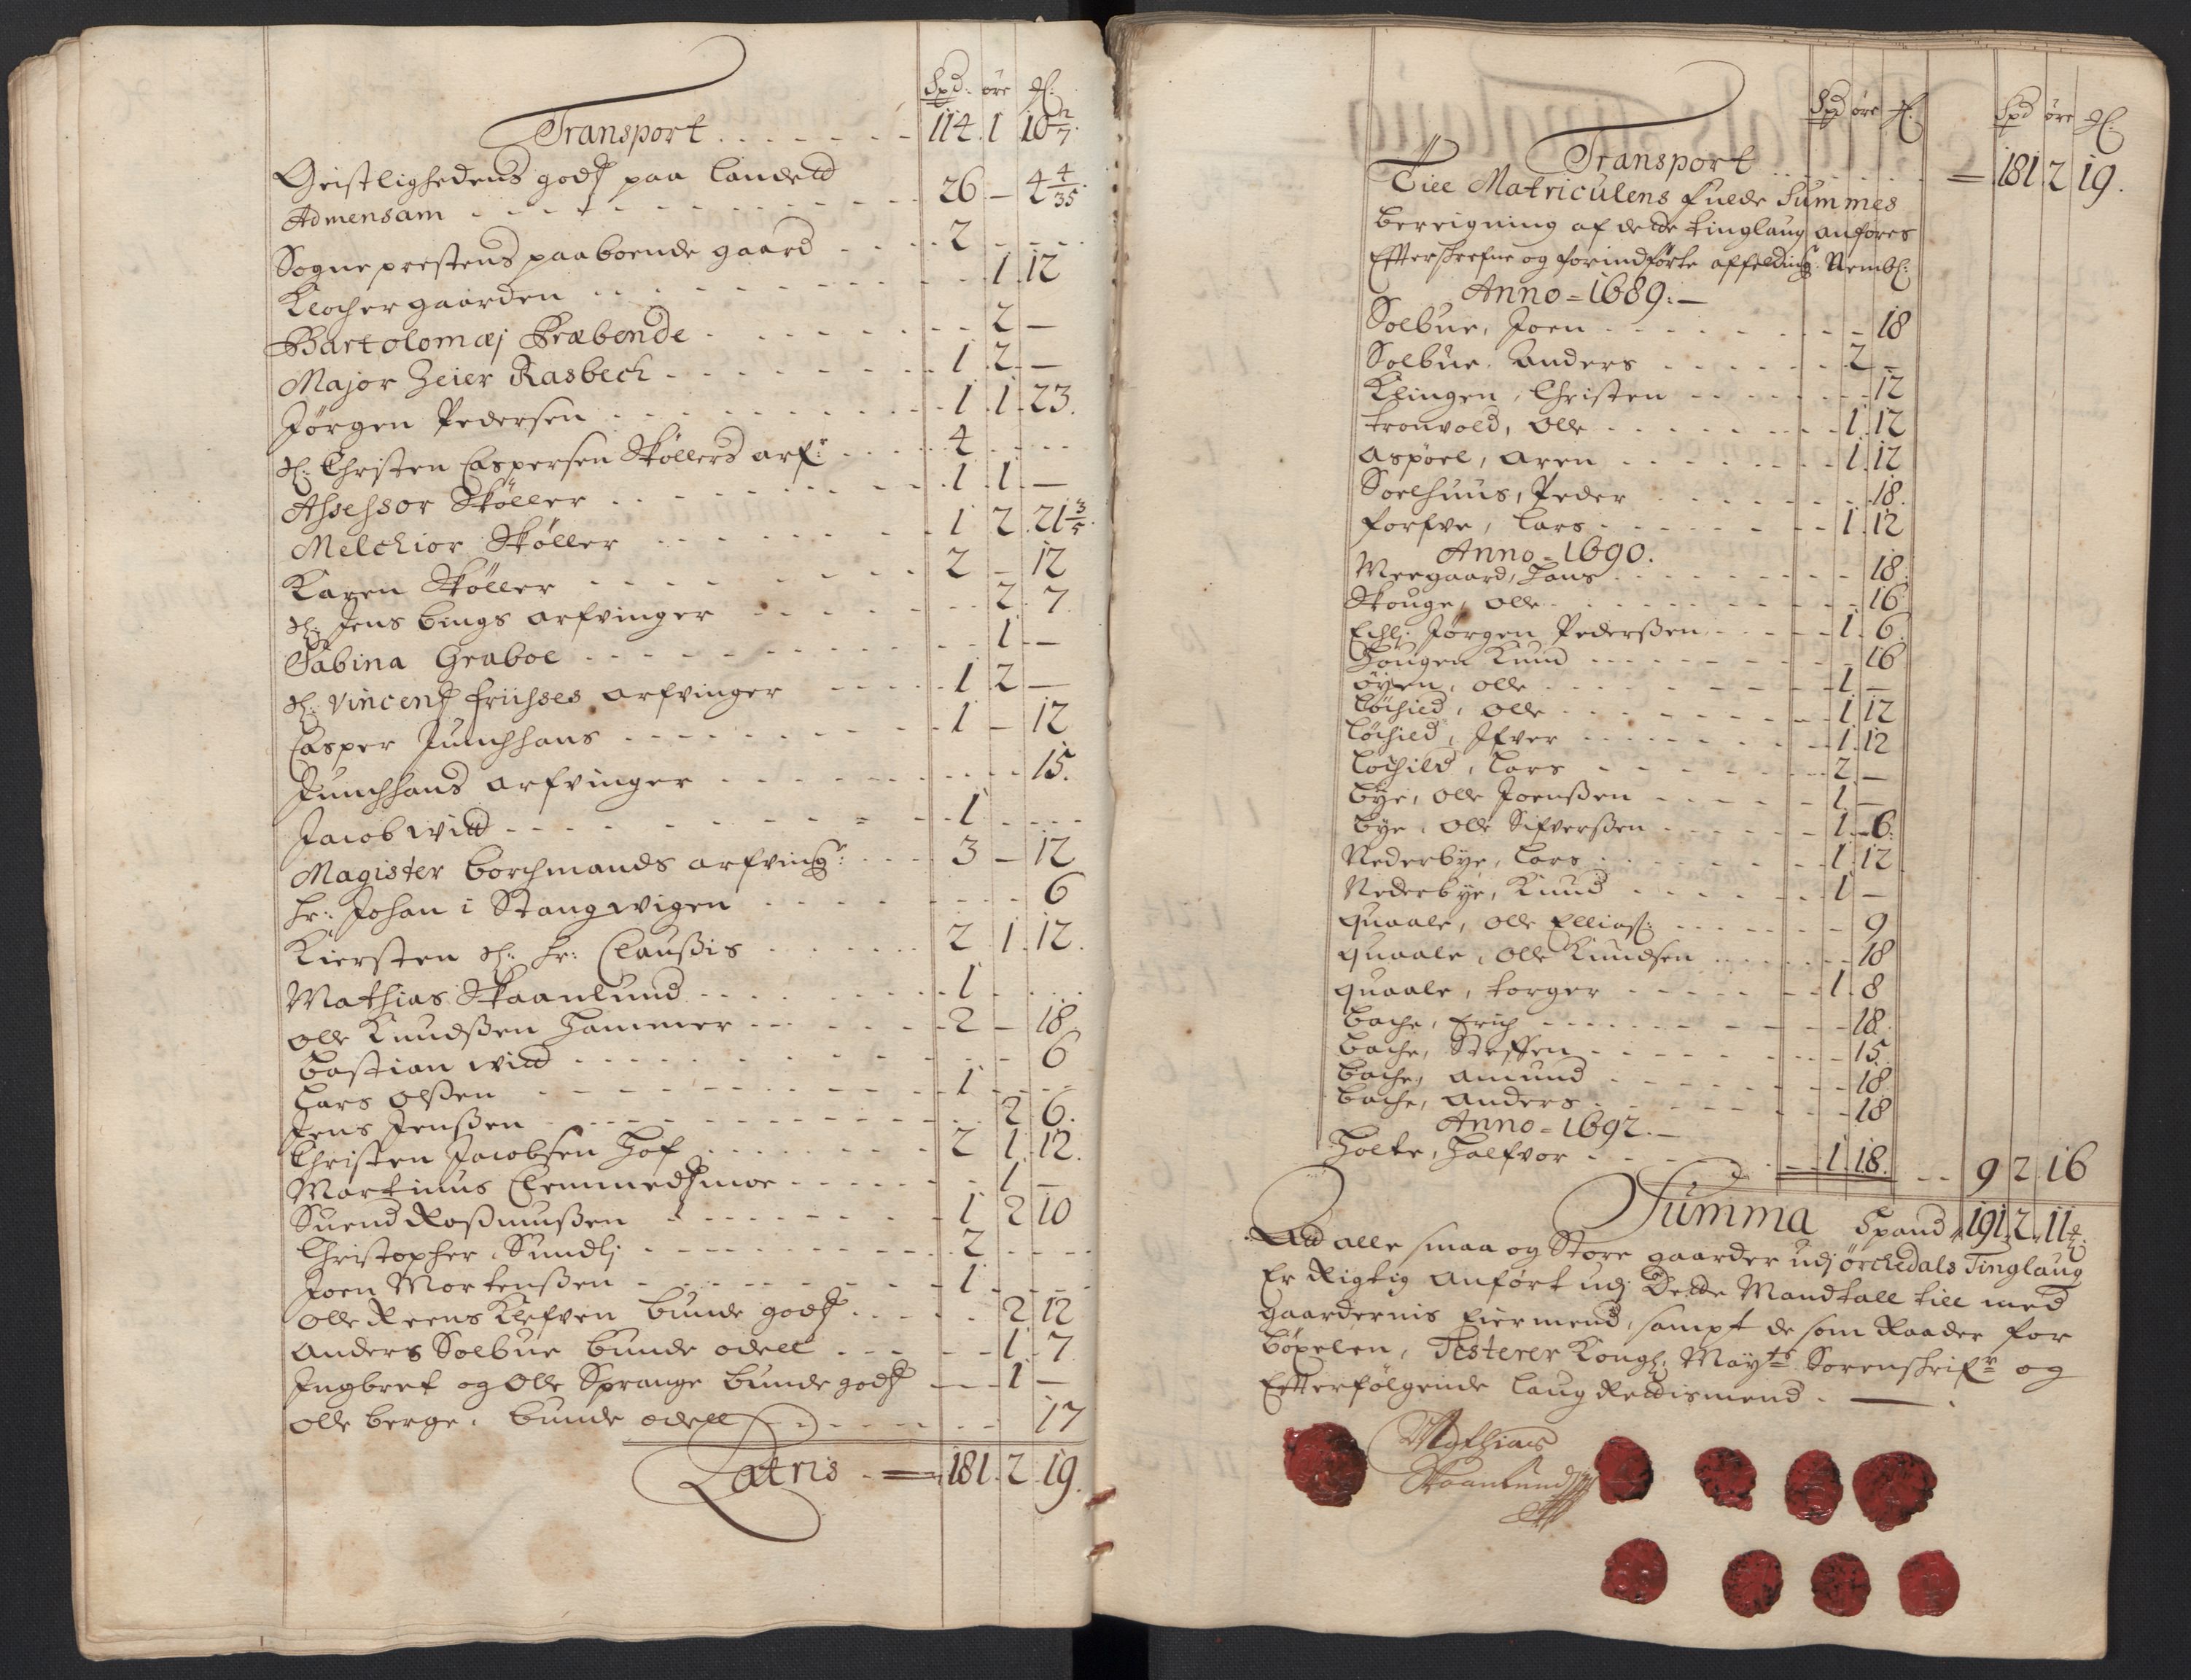 Spd: øre ₰:
Transport . . . . . . 114. 1 10 2/7.
Geistlighedens godtz paa Landett
Admensam . . . . . 26 – 4 4/35.
Sogneprestens paaboende gaard . . . . 2 . . .
Klochergaarden . . . . . . 1. 12
Bartolomæj Præbende . . . . . 2 –
Major Heier Rasbech . . . . . 1 2. –
Jørgen Pedersen . . . . . 1. 1. 23.
Sl: Christen Caspersen Skøllers arf: . . . 4 . . .
Assessor Skøller . . . . . 1. 1. –
Melchior Skøller . . . . . 1 2. 21 3/5.
Karen Skøller . . . . . 2 – 12
Sl: Jens Bings arfvinger . . . . . 2. 7.
Sabina Graboe . . . . . 1 –
Sl: Vincentz Friises arfvinger . . . . . 1 2 –
Casper Junchhans . . . . . 1 – 12
Junchhans arfvinger . . . . . 15.
Jacob Witt . . . . . 1 . . .
Magister Borchmands arfving: . . . . 3 – 12
Hr: Johan i Stangwigen . . . . . 6
Kiersten Sl: Hr: Claußis . . . . . 2. 1. 12.
Mathias Skaanlund . . . . . 1 . . .
Olle Knudßen Hammer . . . . . 2 – 18
Bastian Witt . . . . . 6
Lars Olßen . . . . . 1 . . .
Jens Jenßen . . . . . 2 6.
Christen Jacobsen Hof . . . . . 2 1. 12.
Martinus Clemmedtzmoe . . . . . 1 –
Suend Rasmußen . . . . . 1 2 10
Christopher Sundlj . . . . . 2 . . .
Joen Mortenßen . . . . . 1 . . .
Olle Reens Klefven bunde godtz . . . . 2 12
Anders Solbue bunde odell . . . . . 1. 7
Ingbret og Olle Sprange bunde godtz . . . 1 –
Olle Berge, bunde odell . . . . . 17
Latris . 181. 2. 19.
Spd øre ₰: Spd øre ₰:
Transport . . . . . . 181. 2 19.
Till Matriculens fulde Summes
bereigning af dette tinglaug anføres
Efterskrefne og forindførte affelding: Nembl:
Anno = 1689: –
Solbue, Joen . . . . . 18
Solbue, Anders . . . . . 2 –
Klingen, Christen . . . . . 12
Tronvold, Olle . . . . . 1. 12
Aspøel, Aren . . . . . 1. 12
Soelhuus, Peder . . . . . 18.
Forfve, Lars . . . . . 1. 12
Anno = 1690.
Meegaard, Hans . . . . . 18.
Skouge, Olle . . . . . 16
Echlj Jørgen Pederßen . . . . . 1. 6.
Hougen Knud . . . . . 16
Øyen, Olle . . . . . 1 –
Løchied, Olle . . . . . 1. 12
Løchied, Ifver . . . . . 1. 12
Løchied, Lars . . . . . 2 –
Bye, Olle Joenßen . . . . . 1. –
Bye, Olle Sifverßen . . . . . 1. 6.
Nederbye, Lars . . . . . 1. 12
Nederbye, Knud . . . . . 1 –
Quaale, Olle Elliaß: . . . . . 9
Quaale, Olle Knudsen . . . . . 18
Quaale, Torger . . . . . 1. 8
Bache, Erich . . . . . 18.
Bache, Steffen . . . . . 15.
Bache, Amund . . . . . 18
Bache, Anders . . . . . 18
Anno = 1692. –
Holte, Halfvor . . . . . 1. 18. . . 9 2. 16
Summa Spand 191. 2. 11
Att alle smaa og Store gaarder udj Ørchedals Tinglaug
Er Rigtig Anført udj Dette Mandtall till med
gaardernis Eiermend, sampt de som Raader for
bøxelen, Testerer Kongl: Mayts Sorenskrifr og
Efterfølgende Laug Rettismend.
Mathias
Skaanlund